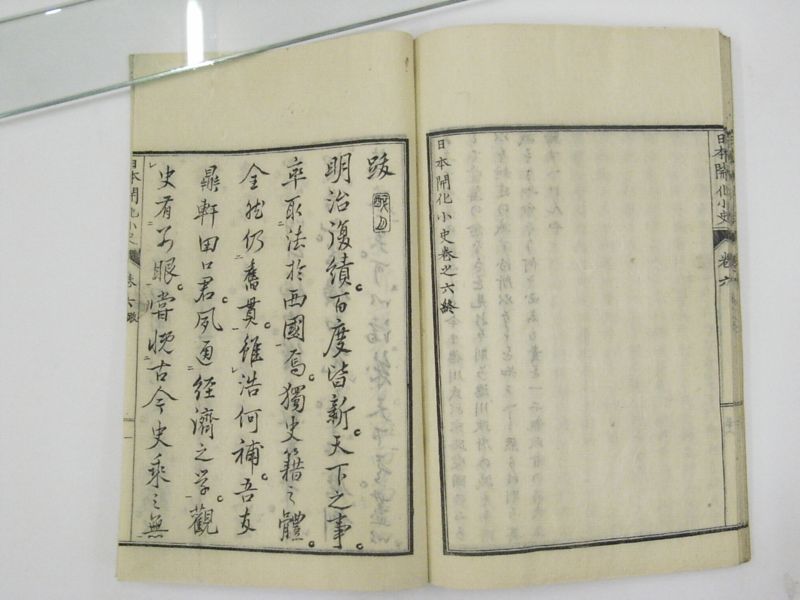 日本開化小史 卷六
日本開化小史卷之六終
跋
明治復績百度皆新。天下之事。
率取法於西國焉。獨史籍之體。
全然仍舊貫。雖浩何補。吾友
鼎軒田口君夙通経濟之学。觀
史有眼。嘗慨古今史乘之無
日本開化小史 卷六跋